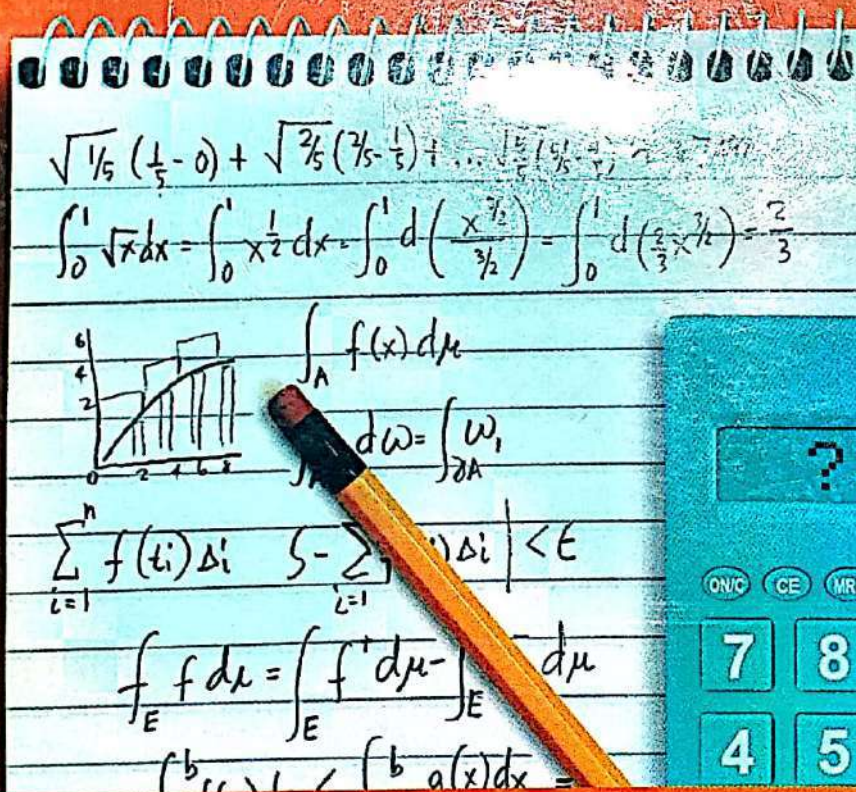 √1/5 (1/5 - 0) + √2/5 (2/5 - 1/5) + ...
∫₀¹ √x dx = ∫₀¹ x^½ dx = ∫₀¹ d(x^3/2 / 3/2) = ∫₀¹ d(2/3 x^3/2) = 2/3
6
4
2
0 2 4 6 8
∫_A f(x) dμ
dω = ∫_∂A ω,
n
∑ f(ti) Δi S - ∑ i) Δi | < ε
i=1 i=1
∫_E f dμ = ∫_E f⁺ dμ - ∫_E dμ
b b g(x) dx =
?
ON/C CE MR
7 8
4 5